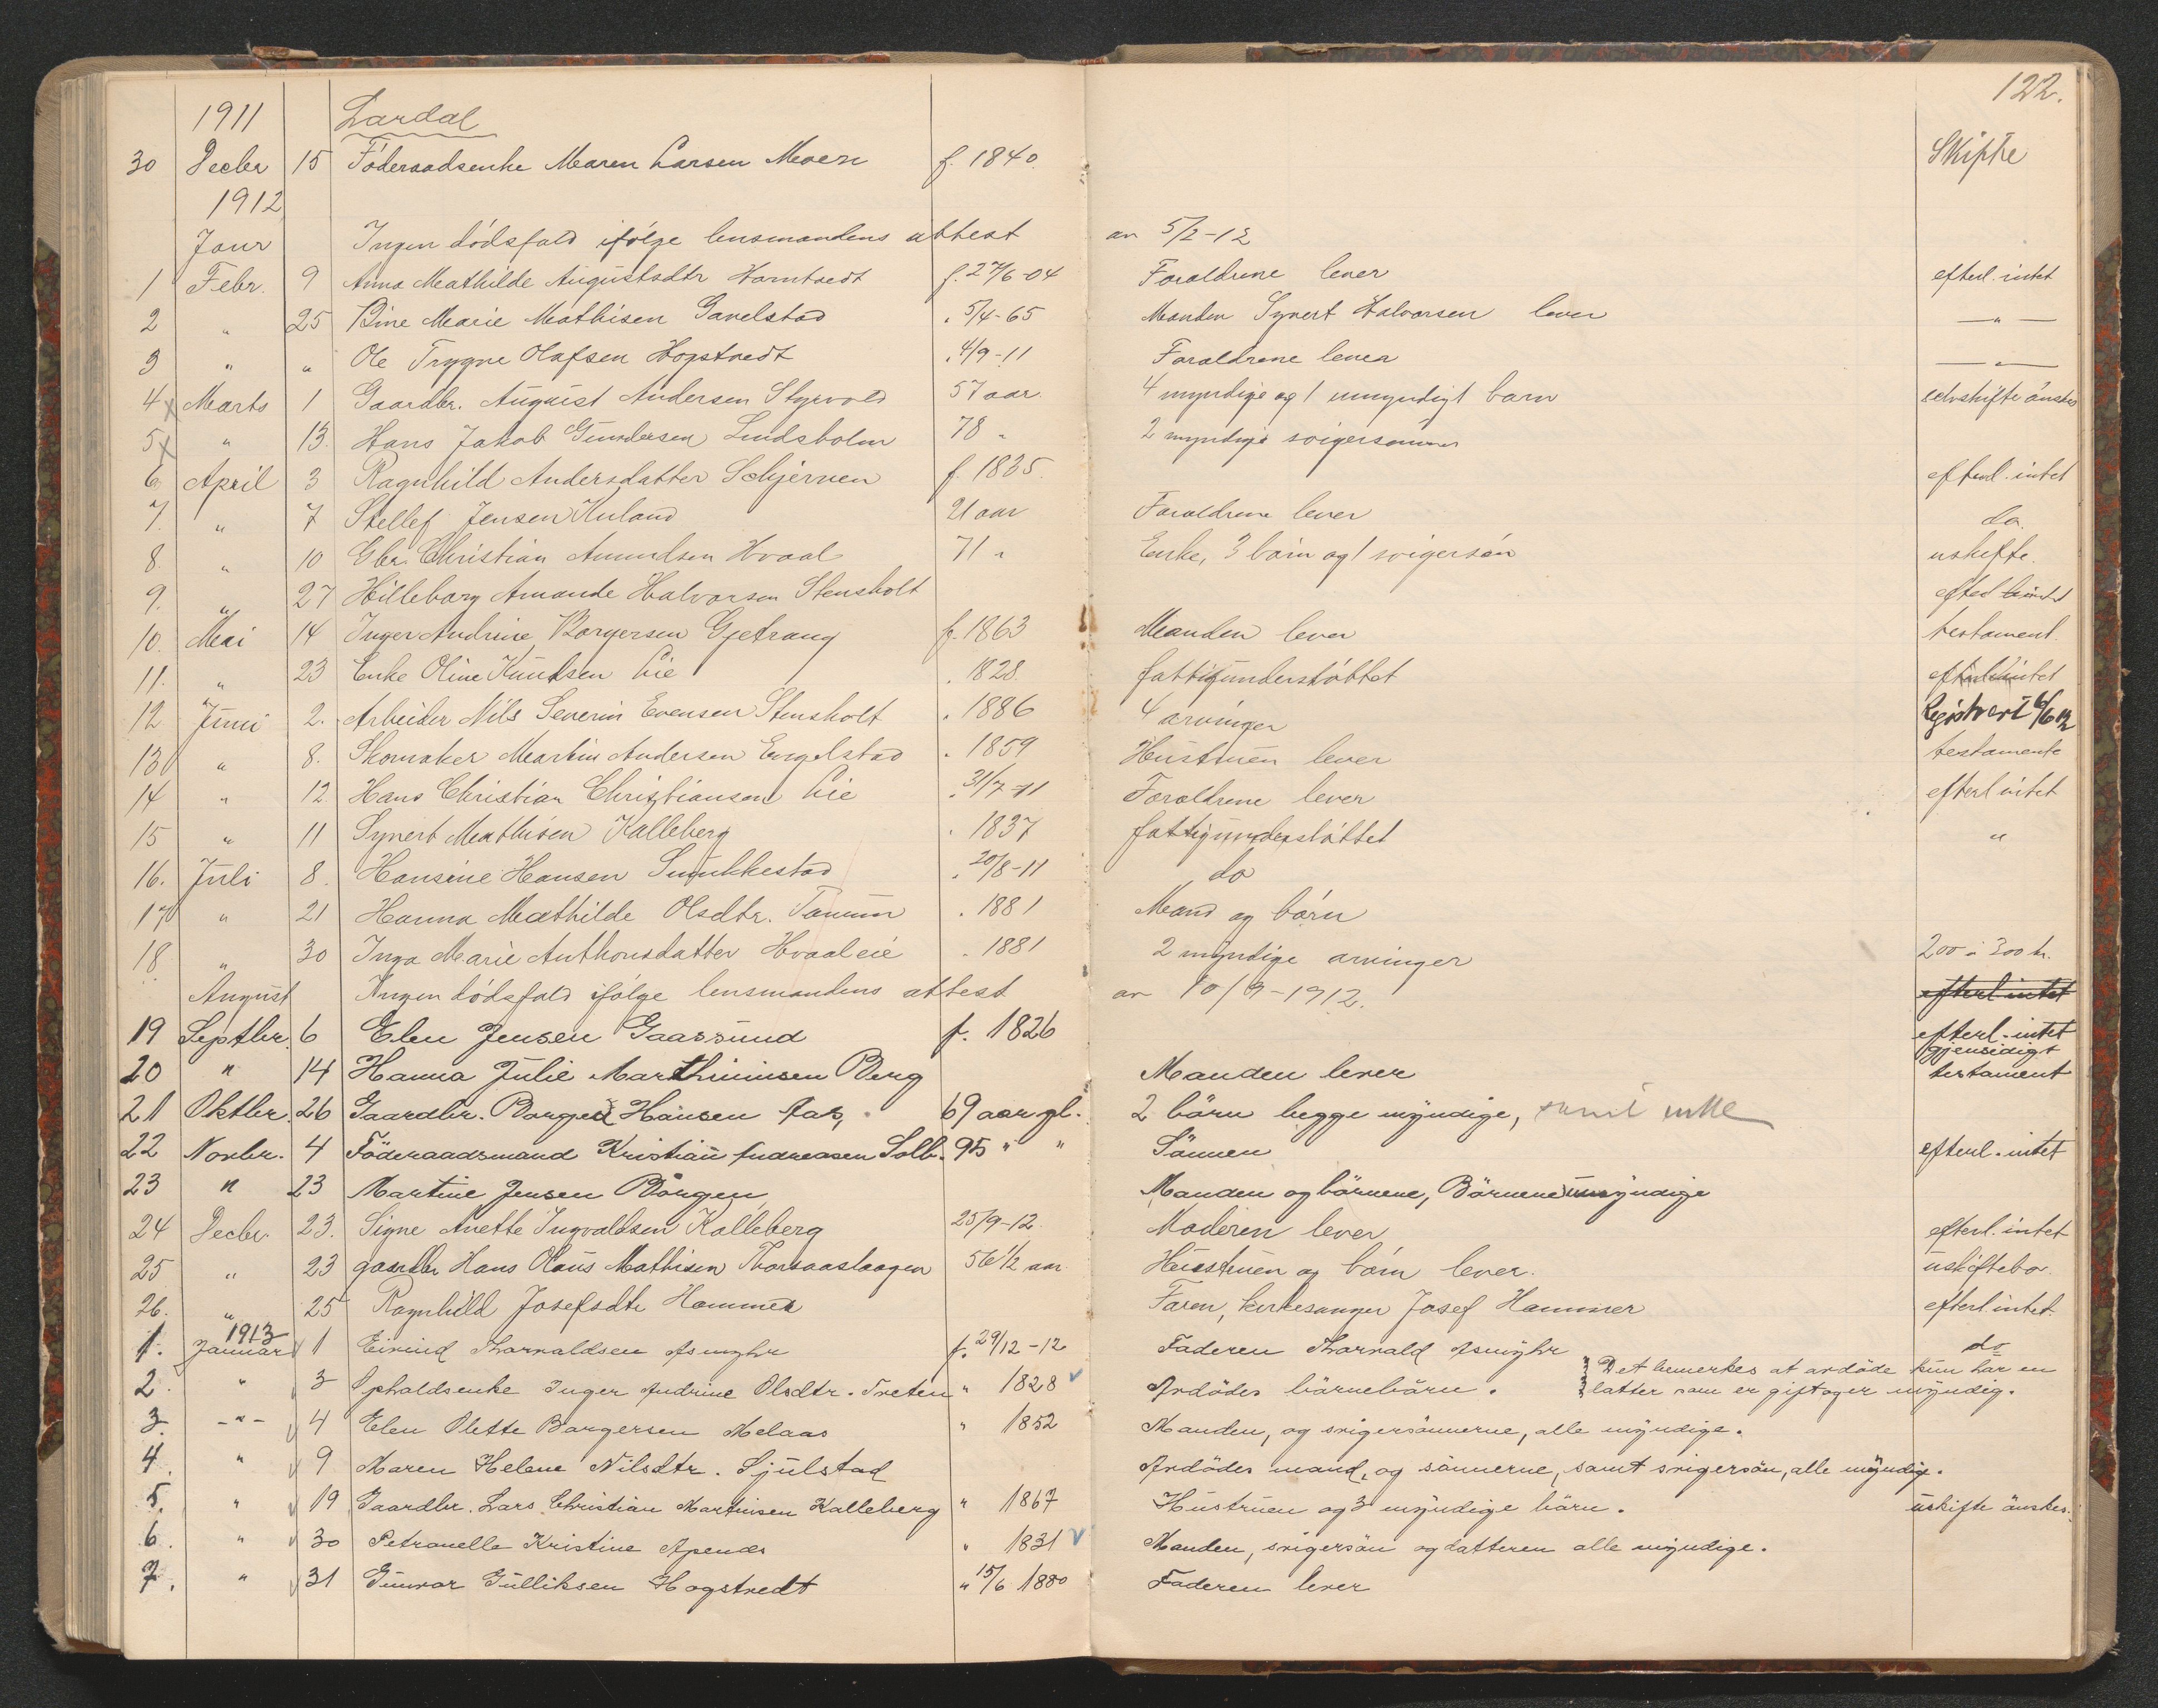 122.
1911 Lardal
30 Decbr 15 Föderaadsenke Maren Larsen Moen f. 1840 Skifte
1912
Janr Ingen dödsfald ifölge lensmandens attest av 5/2-12
1 Febr. 9 Anna Mathilde Augustsdtr Hamtvedt f. 27/6-04 Foraldrene lever efterl. intet
2 " 25 Bine Marie Mathisen Gavelstad " 5/4-65 Manden Syvert Halvorsen lever — " —
3 " " Ole Trygve Olafsen Hogstvedt " 4/9-11 Foraldrene lever — " —
4 x Marts 1 Gaardbr. August Andersen Styrvold 57 aar. 4 myndige og 1 umyndigt barn selvskifte önskes
5 x " 13. Hans Jakob Gundersen Lindsholm 78 " 2 myndige svigersönner
6 April 3 Ragnhild Andersdatter Schjerven f. 1835. efterl. intet
7. " 7 Stellef Jensen Kuland 21 aar Foraldrene lever do.
8. " 10 Gbr. Christian Amundsen Hvaal 71 " Enke, 3 börn og 1 svigersön uskifte.
9. " 27 Hilleborg Amande Halvorsen Stensholt efterl intet
10. Mai 14 Inger Andrine Borgersen Gjetrang f. 1863 Manden lever testament.
11. " 23 Enke Oline Knudsen Lie . 1828. fattigunderstöttet efterl intet
12 Juni 2. Arbeider Nils Severin Evensen Stensholt . 1886 4 arvinger Registrert 6/6 12
13 " 8. Skomaker Martin Andersen Engelstad . 1859 Hustruen lever testamente
14 " 12 Hans Christian Christiansen Lie . 31/7-11 Foraldrene lever efterl intet
15 " 11 Syvert Mathisen Kalleberg . 1837 fattigunderstöttet "
16. Juli 8. Hansine Hansen Smukkestad . 20/8-11 do
17 " 21 Hanna Mathilde Olsdtr. Tanum . 1881 Mand og börn
18 " 30 Inga Marie Anthonsdatter Hvaaleie . 1881 2 myndige arvinger 200 à 300 kr.
August Ingen dödsfald ifölge lensmandens attest av 10/9-1912. efterl intet
19 Septbr. 6 Elen Jensen Gaasrund f. 1826 efterl. intet
20 " 14 Hanna Julie Marthinisen Berg Manden lever gjensidigt testament
21 Oktbr. 26 Gaardbr. Borger Hansen 69 aar gl. 2 börn begge myndige,
22 Novbr. 4 Föderaadsmand Kristian Andreasen Solb. 95 " " Sönnen efterl. intet
23 " 23 Martine Jensen Borgen Manden og börnene, Börnene umyndige
24 Decbr. 23. Signe Anette Ingvaldsen Kalleberg 25/9-12. Moderen lever efterl. intet
25 " 23 gaardbr Hans Olaus Mathisen Thorsaaslaagen 56 1/2 aar. Hustruen og börn lever. uskiftebo.
26. " 25 Ragnhild Josefsdtr Hammer Faren, kirkesanger Josef Hammer efterl intet.
1913
1. Januar v 1 Eivind Thorvaldsen Asmyhr f. 29/12-12 Faderen Thorvald Asmyhr do
2. " v 3 Opholdsenke Inger Andrine Olsdtr. Treten " 1828 v Avdödes börnebörn. Det bemerkes at avdöde kun har en
datter som er gift og er myndig.
3. - " - v 4 Elen Olette Borgersen Melaas " 1852 Manden, og svigersönnerne, alle myndige.
4. " v 9 Maren Helene Nilsdtr. Sjulstad Avdödes mand, og sönnerne, samt svigersön, alle myndige.
5. " v 19 Gaardbr. Lars Christian Martinsen Kalleberg " 1867 Hustruen og 3 myndige börn. uskifte önskes.
6. " v 30 Petronelle Kristine Apenes " 1831 v Manden, svigersön og datteren alle myndige.
7. " v 31 Gunvor Gulliksen Hogstvedt " 15/6 1880 Faderen lever